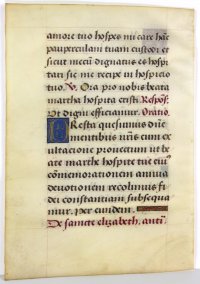 amore tuo hospes mi care hāc
pauperculam tuam custodi et
sicut mecū dignatus es hospi
tari sic me recipe in hospicio
tuo. V. Ora pro nobis beata
martha hospita cristi. Respōs.
Ut digni efficiamur. Oratio.
Presta quesumus
mentibus cum ex
ultacione provectum ut be
ate marthe hospite tue
comemorationem annua
devotionem recolimus fi
dei constantiam subsequa
mur. per eundem
De sancte elizabeth. anti